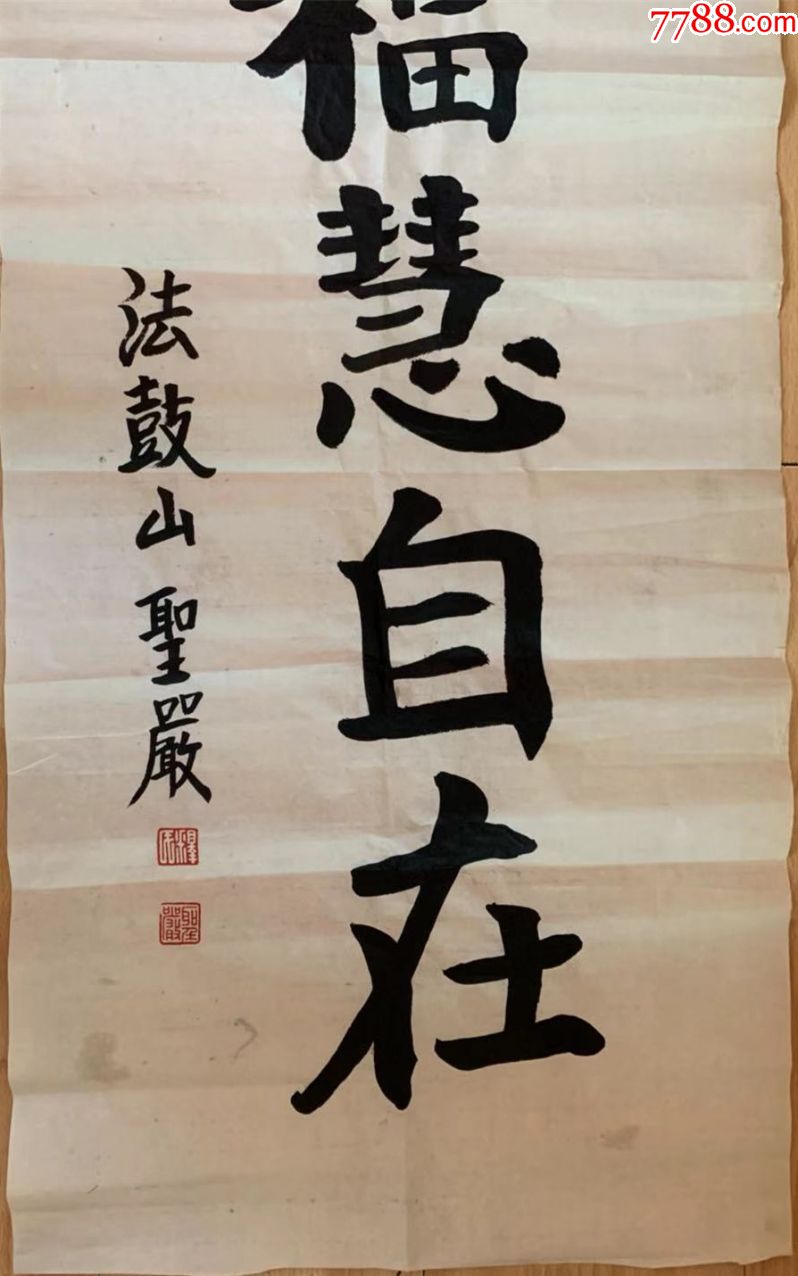 7788.com
福慧自在
法鼓山聖嚴
聖嚴